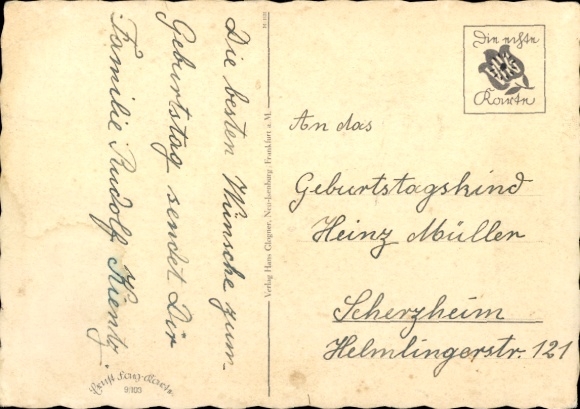 Die besten Wünsche zum
Geburtstag sendet Dir
Familie Rudolf Kientz.
9/103
Verlag Hans Glogner, Neu-Isenburg, Frankfurt a. M.
Die echte
Karte
An das
Geburtstagskind
Heinz Müller
Scherzheim
Helmlingerstr. 121